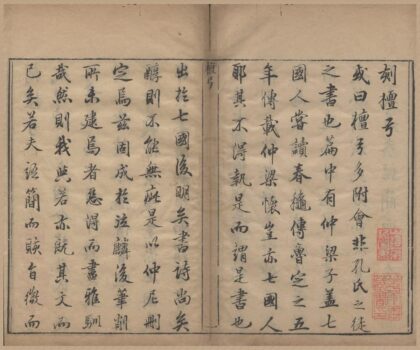 刻檀弓
或曰檀弓多附會非孔氏之徒
之書也篇中有仲梁子蓋七
國人嘗讀春秋傳魯定之五
年傳載仲梁懷豈亦七國人
耶其不得執是而謂是書也
檀弓
出於七國後明矣書詩尚矣
醇則不能無疵是以仲尼刪
定焉茲固成於泣麟後筆削
所未建焉者惡得而盡雅馴
哉然則我與若亦既其文而
已矣若夫語簡而賅旨微而